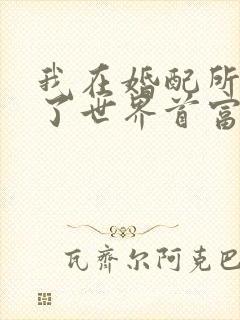 我在婚配所
了世界首富
瓦齐尔阿克巴